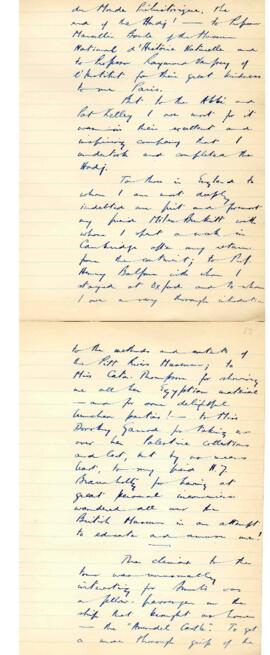 du Monde Préhistorique, the
end of the Hadj! — to Professor
Marcellin Boule of the Museum
National d'Histoire Naturelle and
to Professor Raymond Vaufrey of
l'Institut for their great kindness
to me Paris.
But to the Abbé and
Pat Kelley I owe most for it
was in their excellent and
inspiring company that I
undertook and completed the
Hadj.
To those in England to
whom I am most deeply
indebted are first and foremost
my friend Miles Burkitt with
whom I spent a week in
Cambridge after my return
from the continent; to Prof
Henry Balfour with whom I
stayed at Oxford and to whom
I owe a very thorough introduction
to the methods and contents of
the Pitt Rivers Museum; to
Miss Caton Thompson for showing
me all her Egyptian material
— and for some delightful
luncheon parties! — to Miss
Dorothy Garrod for taking me
over her Palestine collections
and last, but by no means
least, to my friend H.J.
Braunholtz for having at
great personal inconvenience
wandered all over the
British Museum in an attempt
to educate and amuse me!
The climax to the
tour was unusually
interesting for Smuts was
a fellow-passenger on the
ship that brought us home
— the "Arundel Castle". To get
a man through grips of he